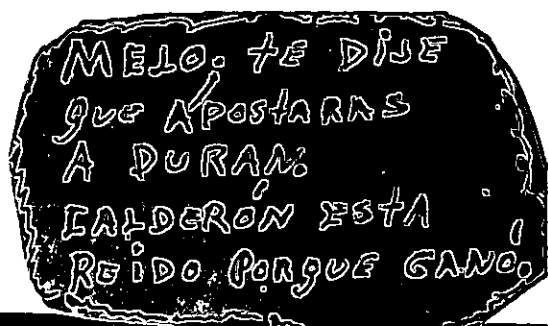 MELO. tE DiJE
QUE APOStARAS
A DURAN.
CALDERÓN ESTA
REiDO PORQUE GANÓ.